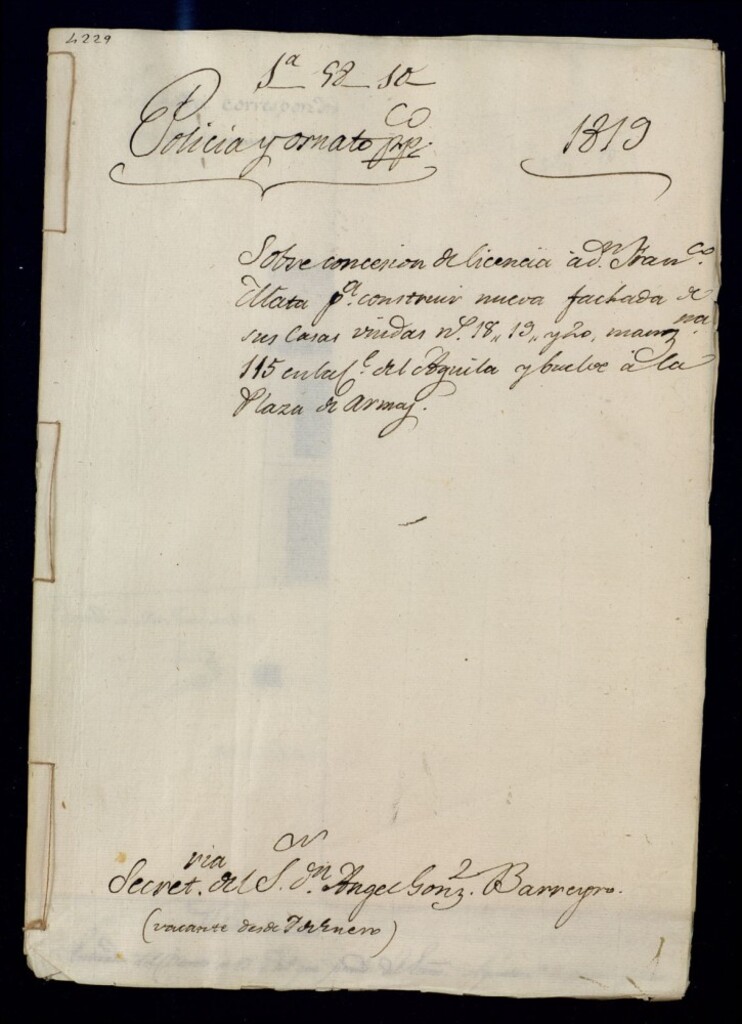 4229
1ª 58 10
Policia y ornato pp.co 1819
Sobre concesion de licencia á dn. Franco.
Mata pa. construir nueva fachada de
sus Casas unidas ns. 18,, 19,, y 20, manzna.
115 en la Ce. del Aguila y buelve á la
Plaza de Armas.
Secretria. del Sr. dn. Angel Gonz. Barreyro.
(vacante desde 7 de Enero)